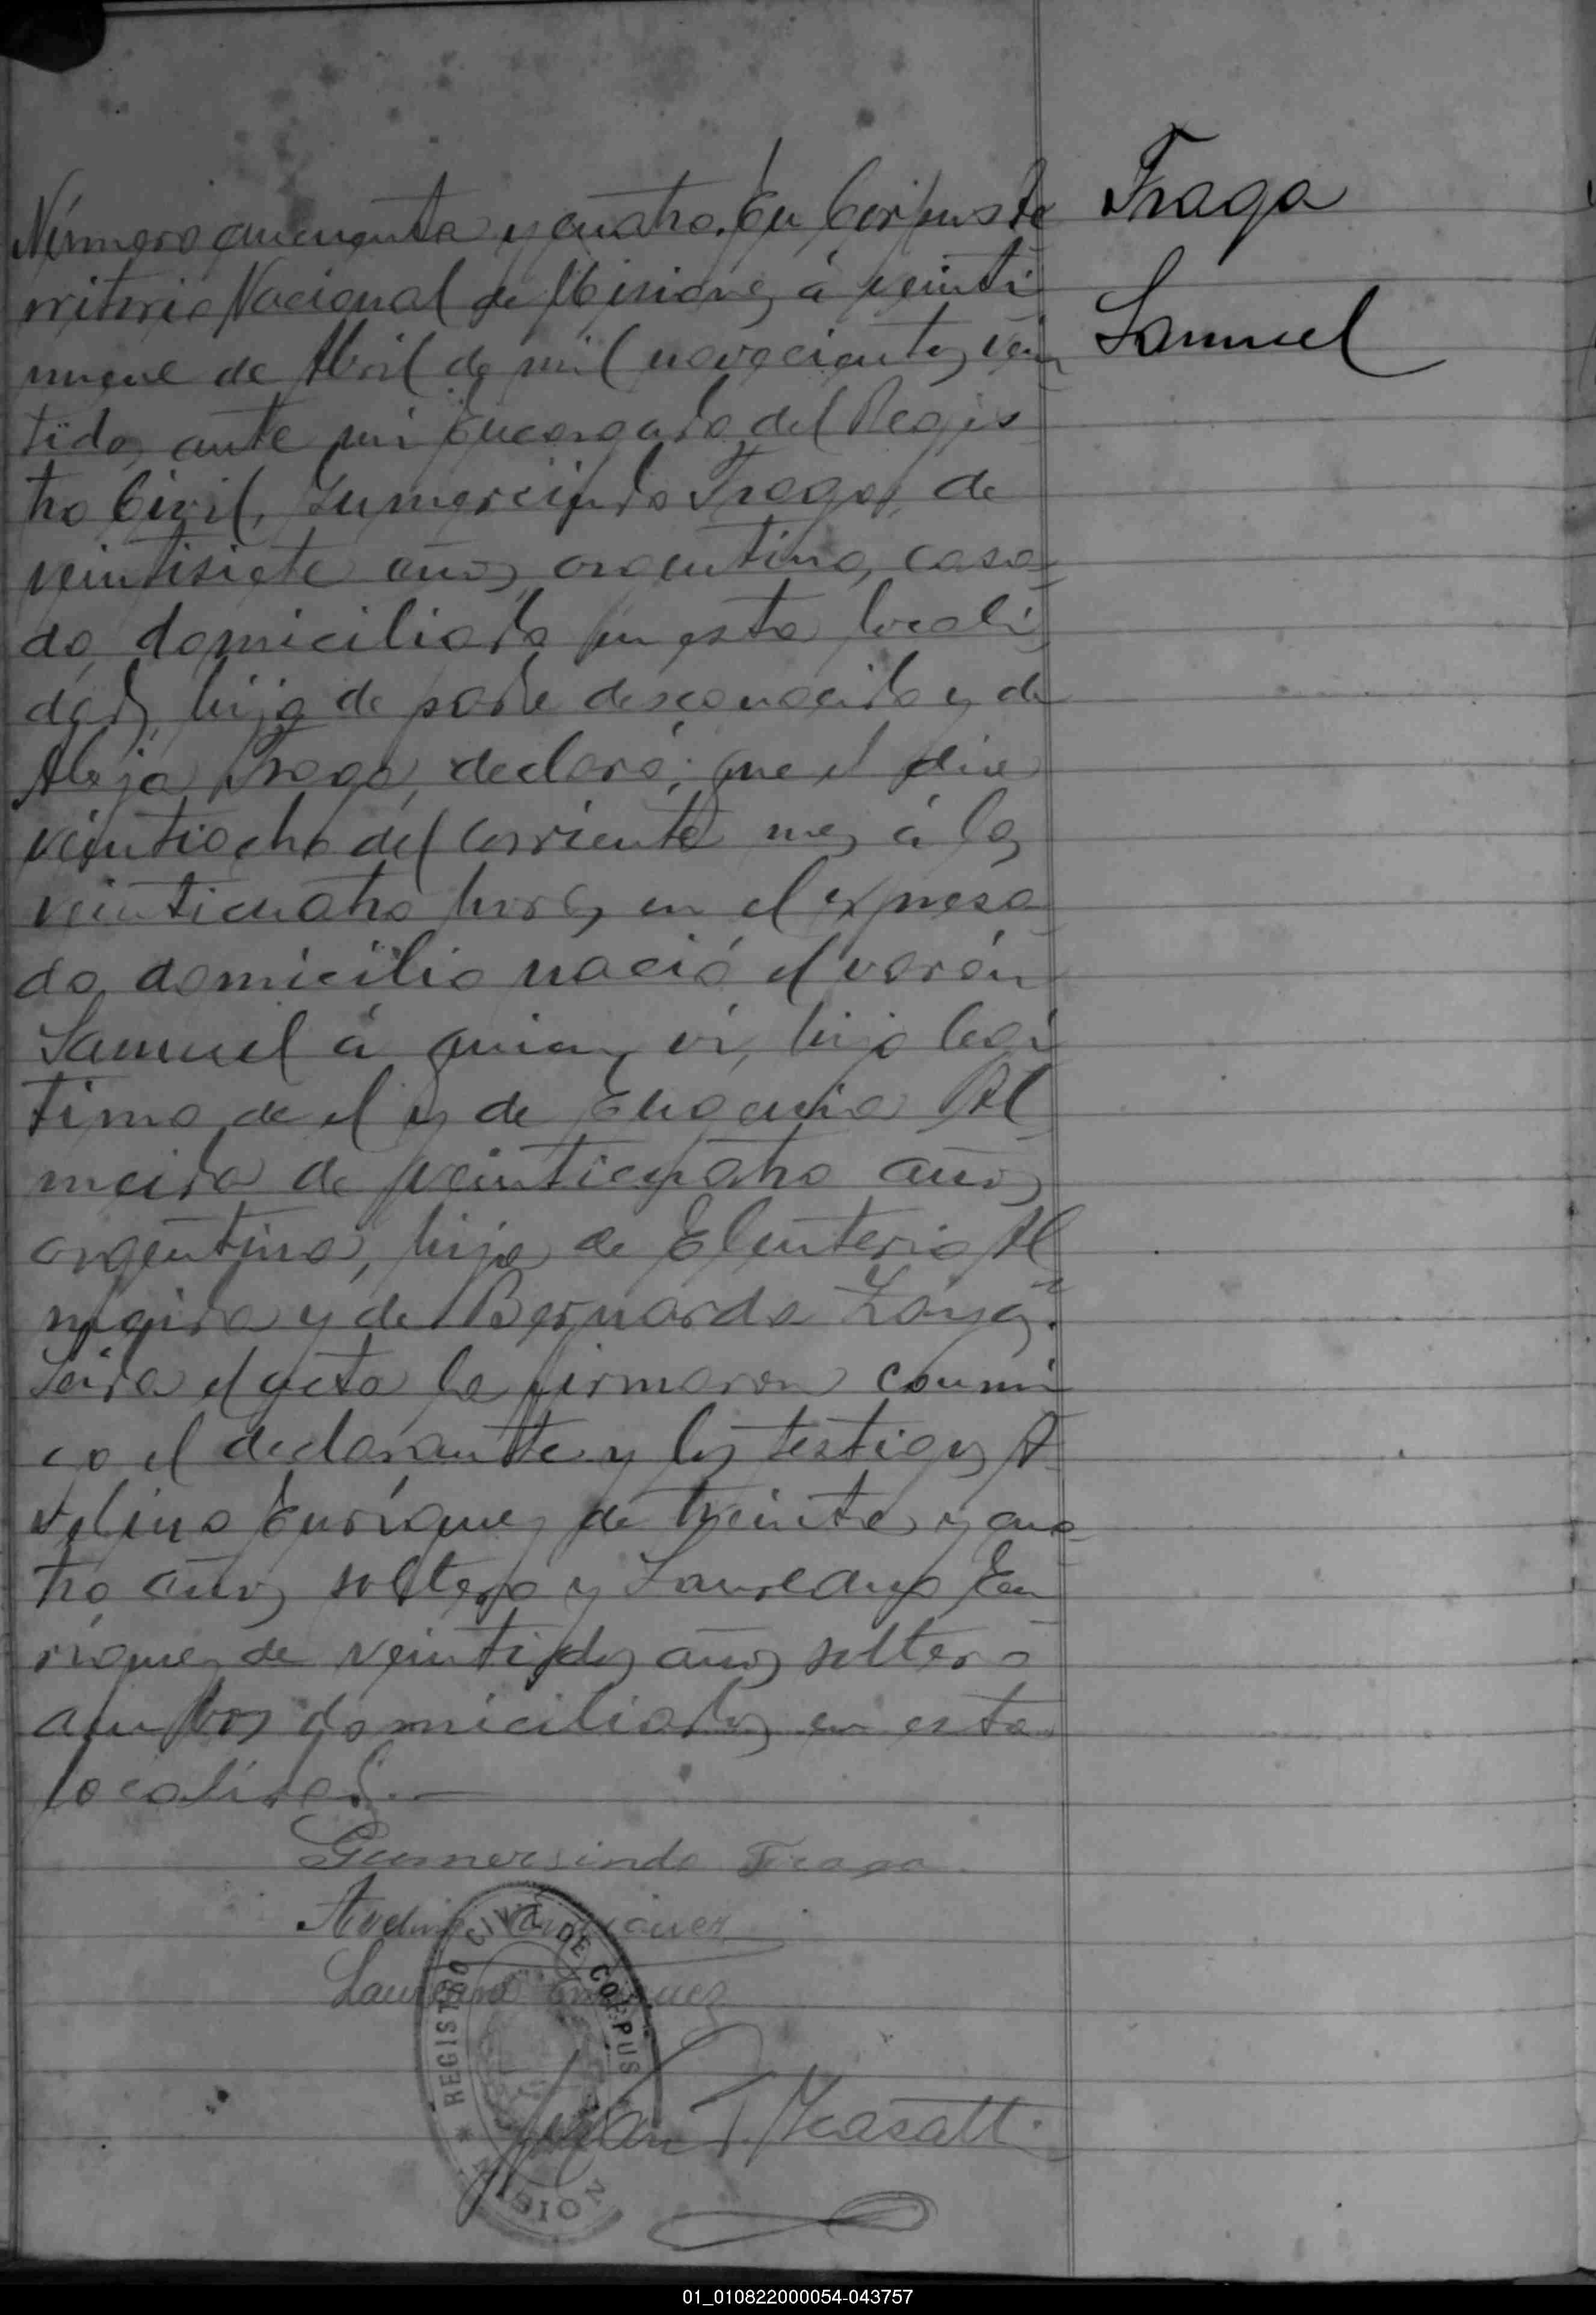 Fraga
Samuel
Número cincuenta y cuatro. En Corpus te
rritorio Nacional de Misiones, á veinti
nueve de Abril de mil novecientos vein
tidos, ante mi Encargado del Regis
tro Civil, Gumercindo Fraga, de
veintisiete años, argentino, casa
do, domiciliado en esta locali
dad, hijo de padre desconocido y de
Aleja Fraga, declaró; que el dia
veintiocho del corriente mes á las
veinticuatro horas, en el expresa
do domicilio nació el varón
Samuel á quien ví, hijo legi
timo de el y de Eugenia Al
meida de veinticuatro años,
argentina, hija de Eleuterio Al
meida y de Bernarda
Leida el acta la firmaron conmi
go el declarante y los testigos A
velino Enriquez de treinta y cua
tro años, soltero y Laureano En
riquez de veintidos años, soltero
ambos domiciliados en esta
localidad.—
Gumersindo Fraga
Avelino Enriquez
Laureano Enriquez
REGISTRO CIVIL DE CORPUS
* MISION
Juan
01_010822000054-043757